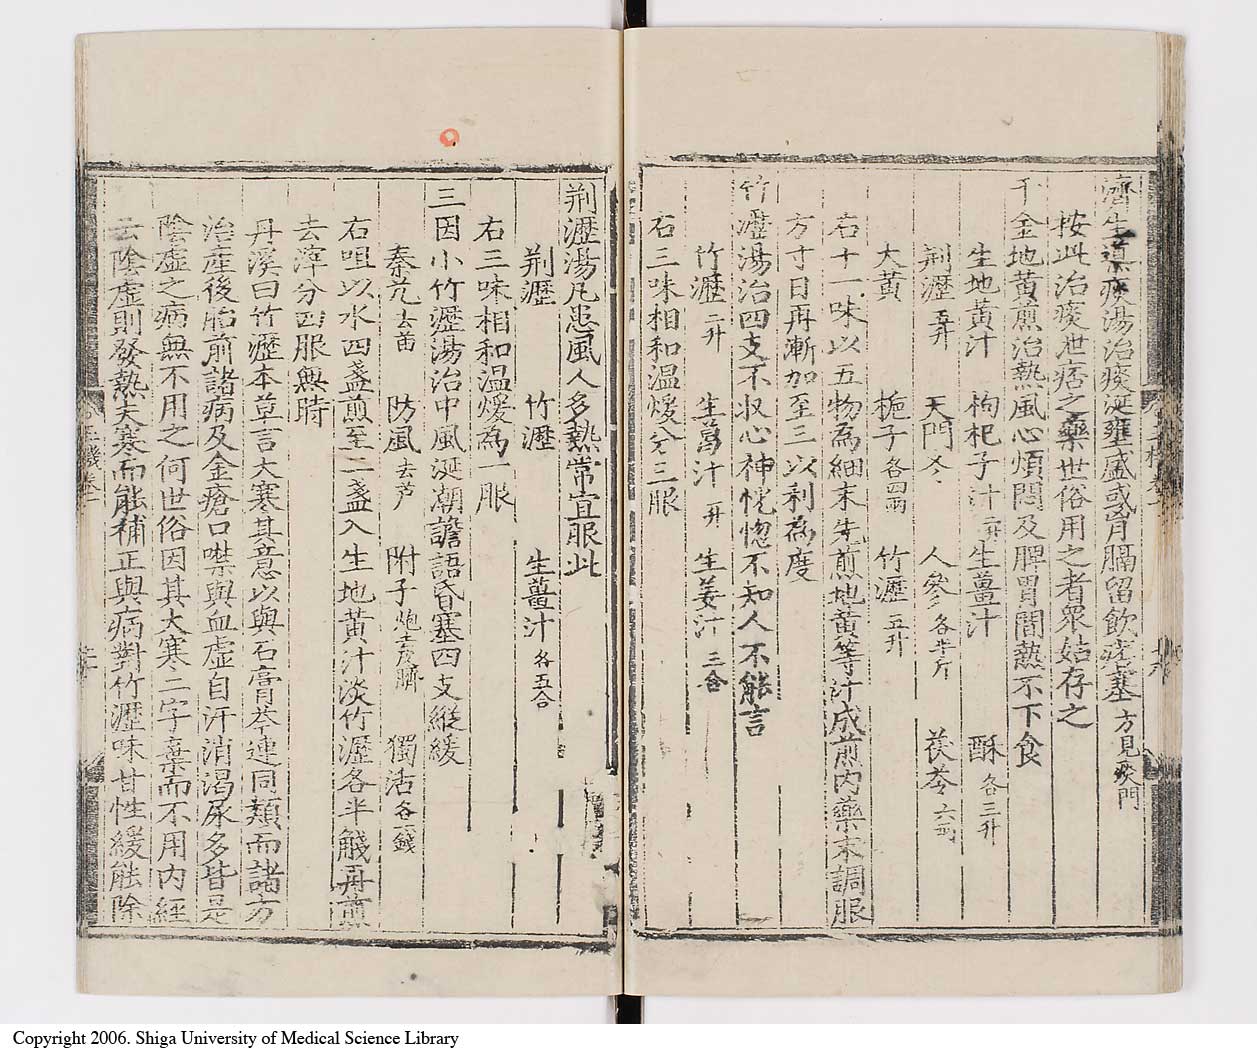 濟生導痰湯治痰涎壅盛或胷膈留飮痞塞方見痰門
按此治痰泄痞之藥世俗用之者衆姑存之
千金地黃煎治熱風心煩悶及脾胃間熱不下食
生地黃汁 枸杞子汁二升 生薑汁 酥各三升
荆瀝五升 天門冬 人參各半斤 茯苓六兩
大黃 梔子各四兩 竹瀝五升
右十一味以五物爲細末先煎地黃等汁成煎內藥末調服
方寸日再漸加至三以利爲度
竹瀝湯治四支不収心神恍惚不知人不能言
竹瀝二升 生葛汁一升 生姜汁三合
右三味相和温煖分三服
荆瀝湯凡患風人多熱常宜服此
荆瀝 竹瀝 生薑汁各五合
右三味相和温煖爲一服
三因小竹瀝湯治中風涎潮譫語昏塞四支縱緩
秦艽去苗 防風去芦 附子炮去皮臍 獨活各一錢
右咀以水四盞煎至二盞入生地黃汁淡竹瀝各半觥再煎
去滓分四服無時
丹溪曰竹瀝本草言大寒其意以與石膏芩連同類而諸方
治產後胎前諸病及金瘡口噤與血虛自汗消渴尿多皆是
陰虛之病無不用之何世俗因其大寒二字棄而不用內經
云陰虛則發熱大寒而能補正與病對竹瀝味甘性緩能除